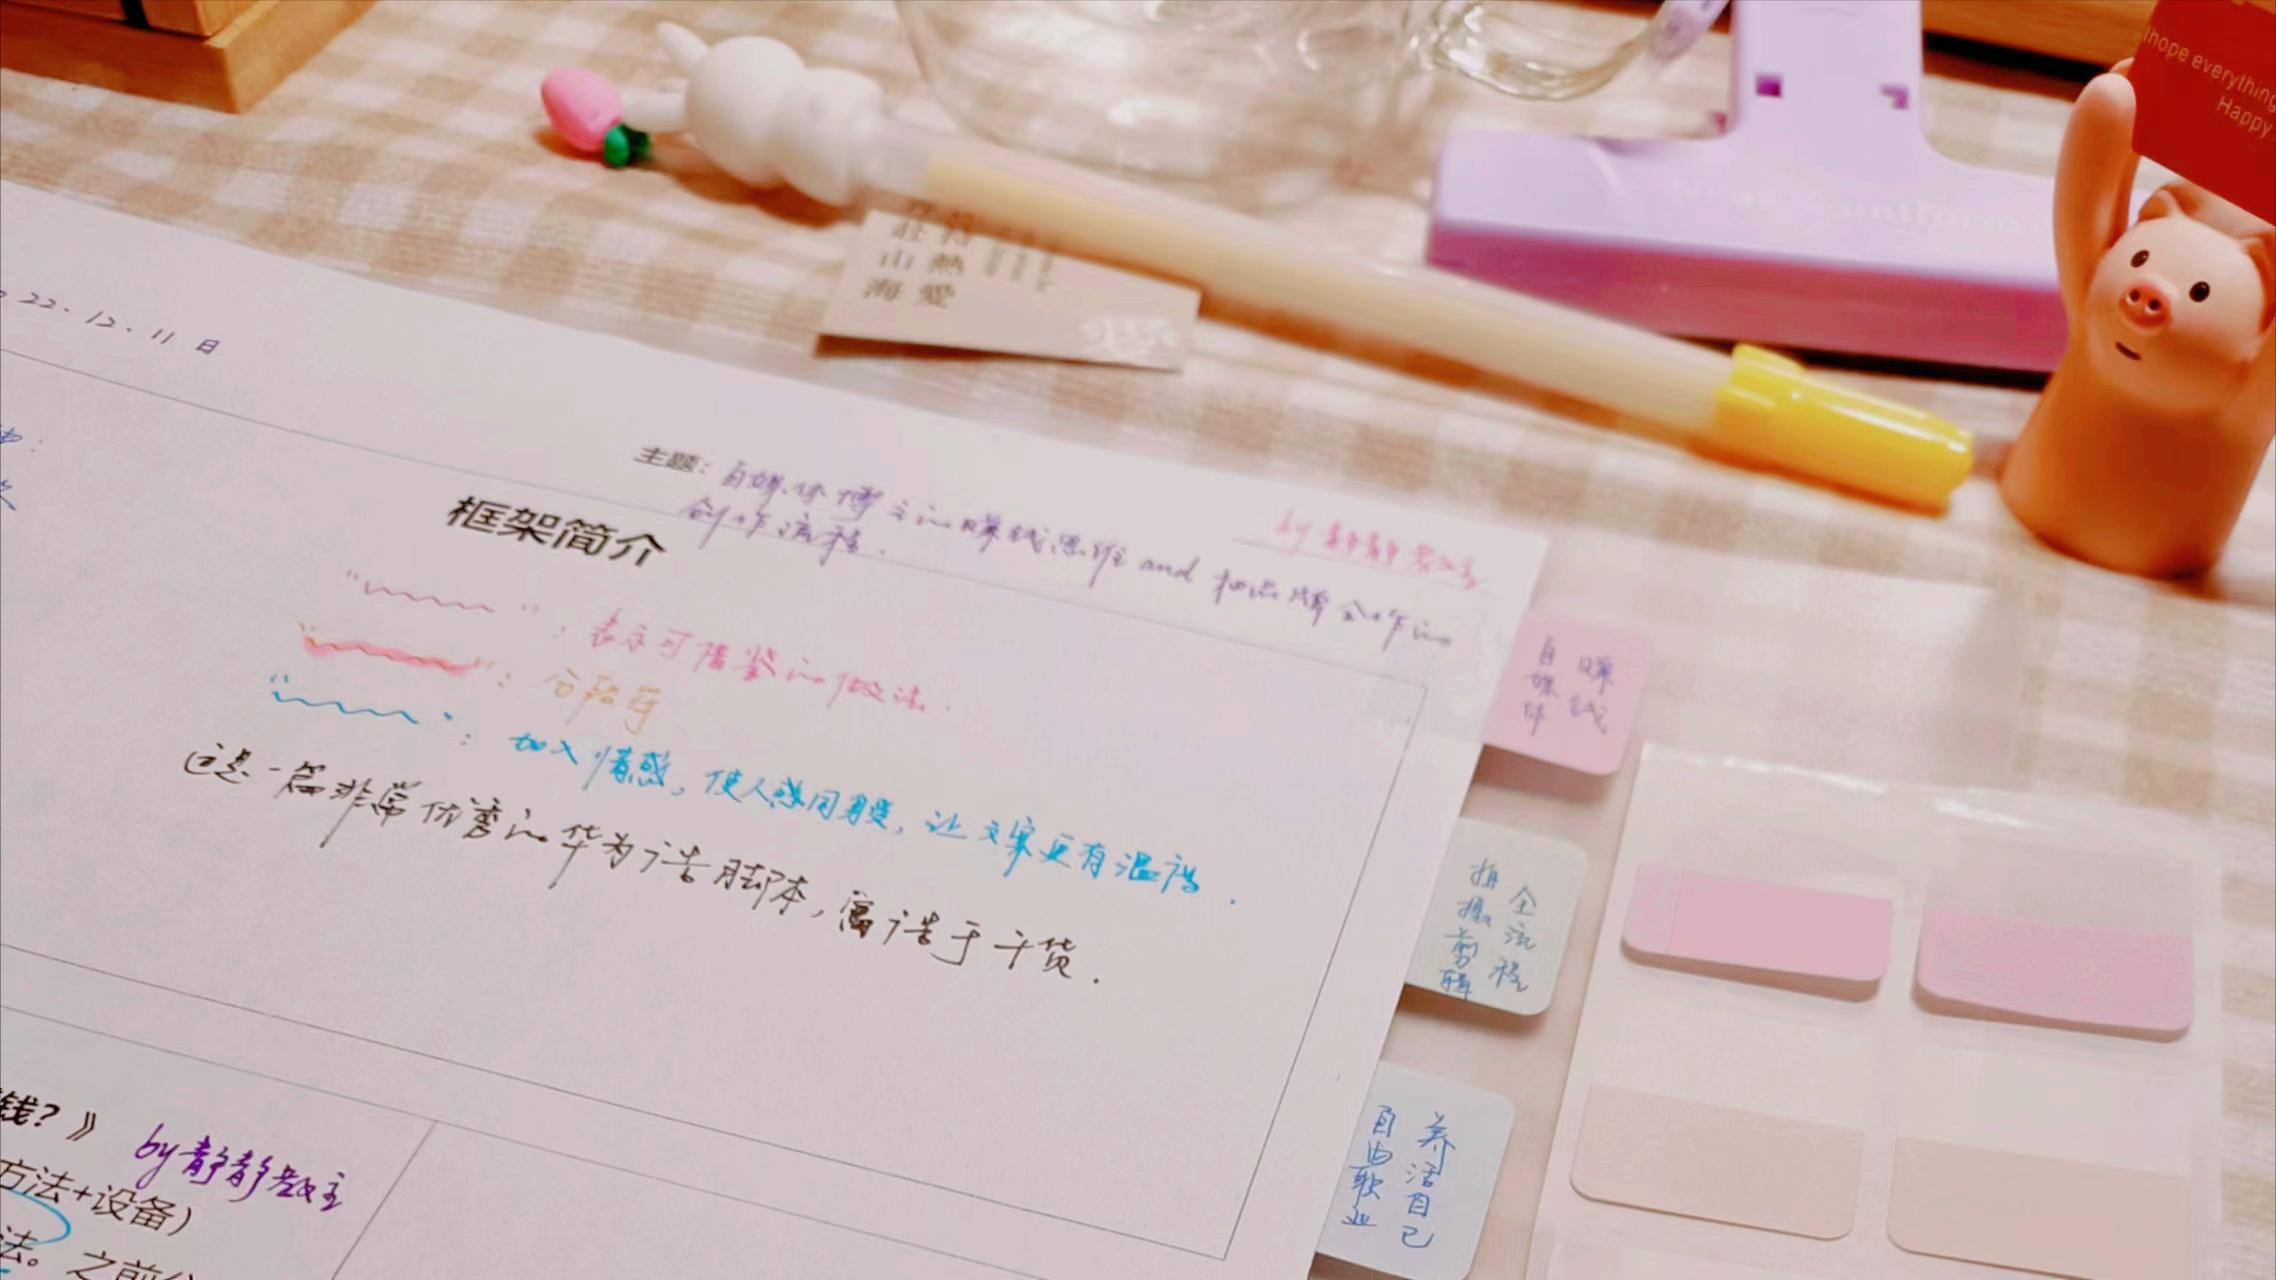 Ihope everything
Happy
山 熱
海 愛
22.12.11 日
主题: 自媒体博主的赚钱思维 and 和品牌合作的
创作流程.
by 静静教主
框架简介
"～～～": 表示可借鉴的做法.
"～～～": 分轻写
"～～～": 加入情感, 使人感同身受, 让文案更有温度.
这是一篇非常优秀的华为广告脚本, 寓广告于干货.
自媒体
赚钱
拍摄剪辑
全流程
自由职业
养活自己
钱? 》 by 静静教主
方法+设备)
法。之前